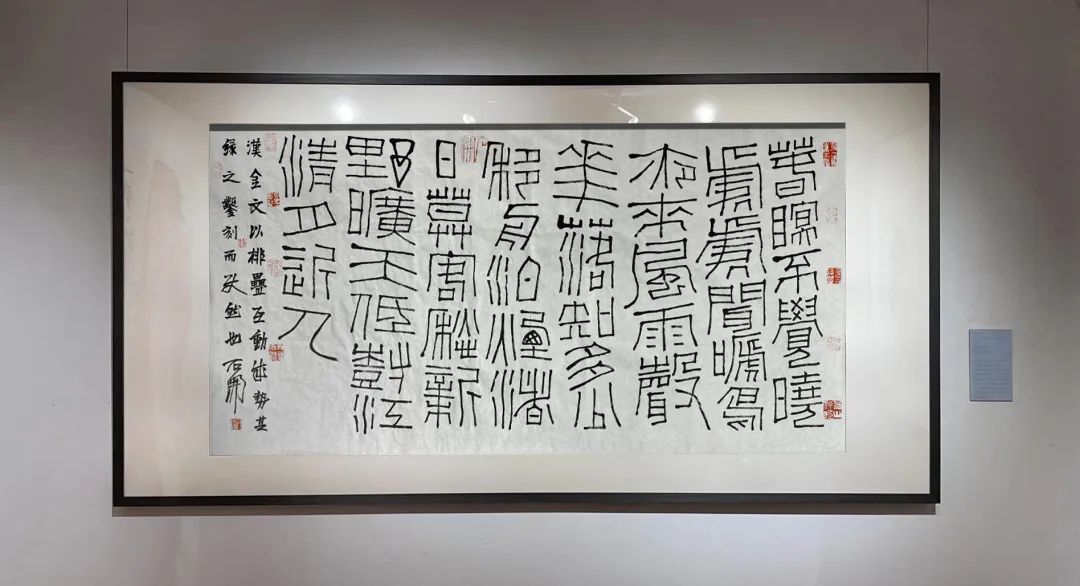 春瞑不覺曉
處處聞嗁鳥
夜來風雨聲
華落知多少
移舟泊煙渚
日暮客愁新
野曠天低樹江
清月近人
漢金文以排疊互動成勢其
緣之鑿刻而然也石開